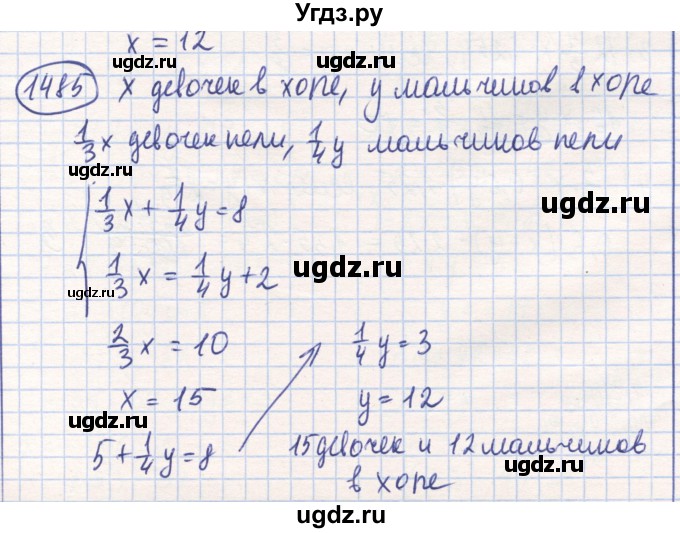 Угдз.ру
x = 12
1485 x девочек в хоре, y мальчиков в хоре
1/3 x девочек пели, 1/4 y мальчиков пели
1/3 x + 1/4 y = 8
1/3 x = 1/4 y + 2
2/3 x = 10
x = 15
5 + 1/4 y = 8
1/4 y = 3
y = 12
15 девочек и 12 мальчиков
в хоре
ugdz.ru
ugdz.ru
ugdz.ru
ugdz.ru
ugdz.ru
ugdz.ru
ugdz.ru
ugdz.ru
ugdz.ru
ugdz.ru
ugdz.ru
ugdz.ru